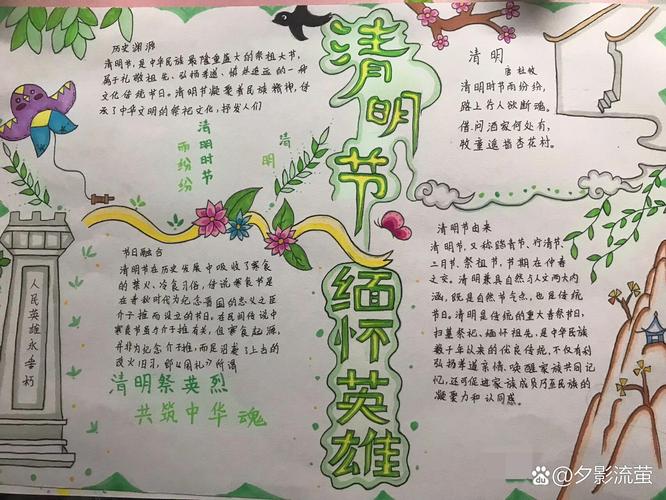 清明节
缅怀英雄
历史渊源
清明节,是中华民族最隆重盛大的祭祖大节,
属于礼敬祖先、弘扬孝道、慎终追远的一种
文化传统节日。清明节凝聚着民族精神,传
承了中华文明的祭祀文化,抒发人们
清明时节
雨纷纷
清明
清明
唐 杜牧
清明时节雨纷纷,
路上行人欲断魂。
借问酒家何处有,
牧童遥指杏花村。
节日融合
清明节在历史发展中吸收了寒食
的禁火、冷食习俗,传说寒食节是
在春秋时代为纪念晋国的忠义之臣
介子推而设立的节日。在民间传说中
寒食节虽与介子推有关,但寒食起源,
并非为纪念介子推,而是沿袭了上古的
改火旧习,即《周礼》所谓
清明祭英烈
共筑中华魂
清明节由来
清明节,又称踏青节、行清节、
三月节、祭祖节,节期在仲春
之交。清明兼具自然与人文两大内
涵,既是自然节气点,也是传统
节日。清明是传统的重大春祭节日,
扫墓祭祀、缅怀祖先,是中华民族
数千年以来的优良传统,不仅有利
弘扬孝道亲情、唤醒家族共同记
忆,还可促进家族成员乃至民族的
凝聚力和认同感。
人民英雄永垂朽
Bai度 @夕影流萤